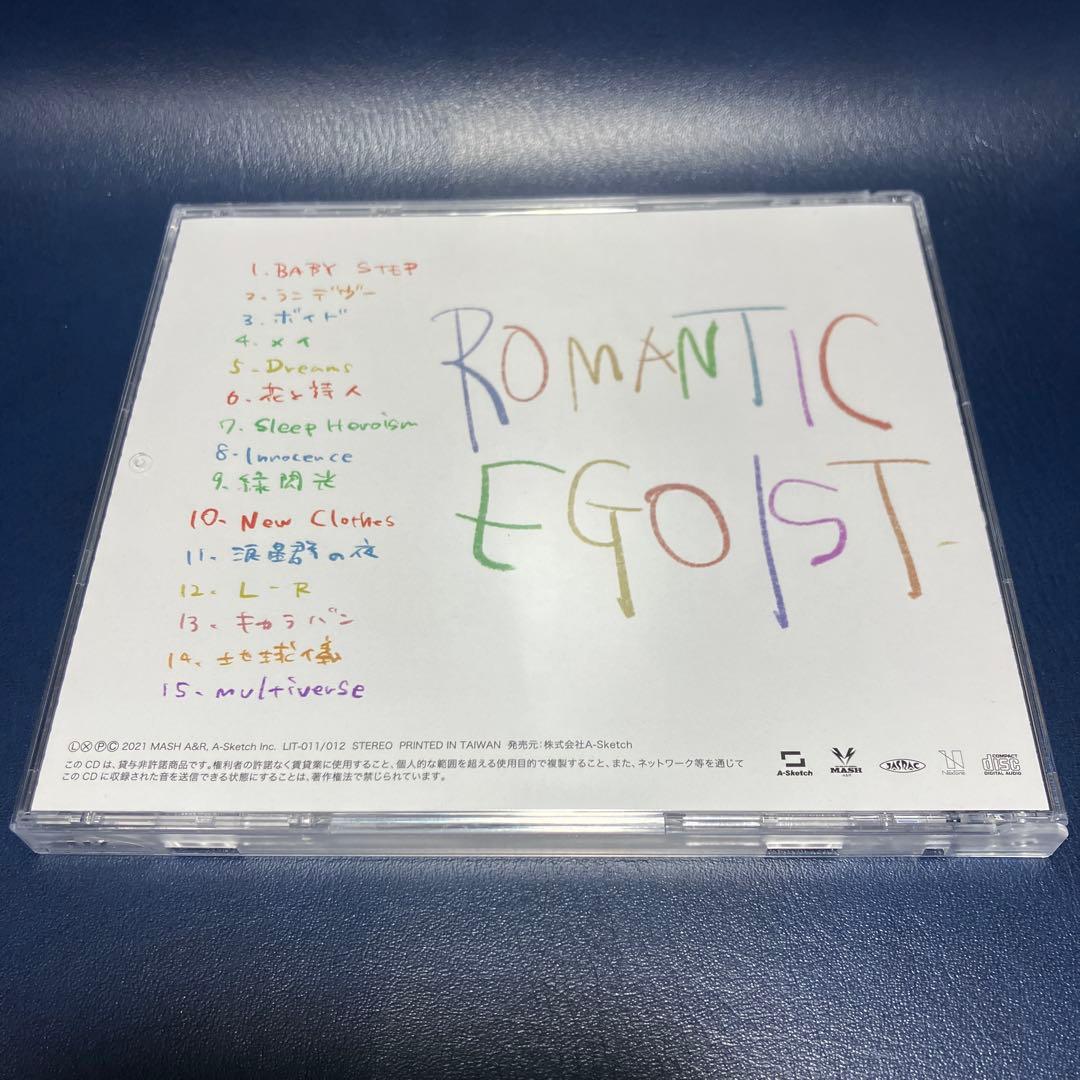 1. BABY STEP
2. ランデヴー
3. ボイド
4. メイ
5. Dreams
6. 花と詩人
7. Sleep Heroism
8. Innocence
9. 緑閃光
10. New Clothes
11. 涙星群の夜
12. L-R
13. キャラバン
14. 地球儀
15. multiverse
ROMANTIC
EGOIST
ⓁⓍⓅⒸ 2021 MASH A&R, A-Sketch Inc. LIT-011/012 STEREO PRINTED IN TAIWAN 発売元:株式会社A-Sketch
このCDは、貸与非許諾商品です。権利者の許諾なく賃貸業に使用すること、個人的な範囲を超える使用目的で複製すること、また、ネットワーク等を通じて
このCDに収録された音を送信できる状態にすることは、著作権法で禁じられています。
A-Sketch
MASH
A&R
JASRAC
NexTone
COMPACT
disc
DIGITAL AUDIO